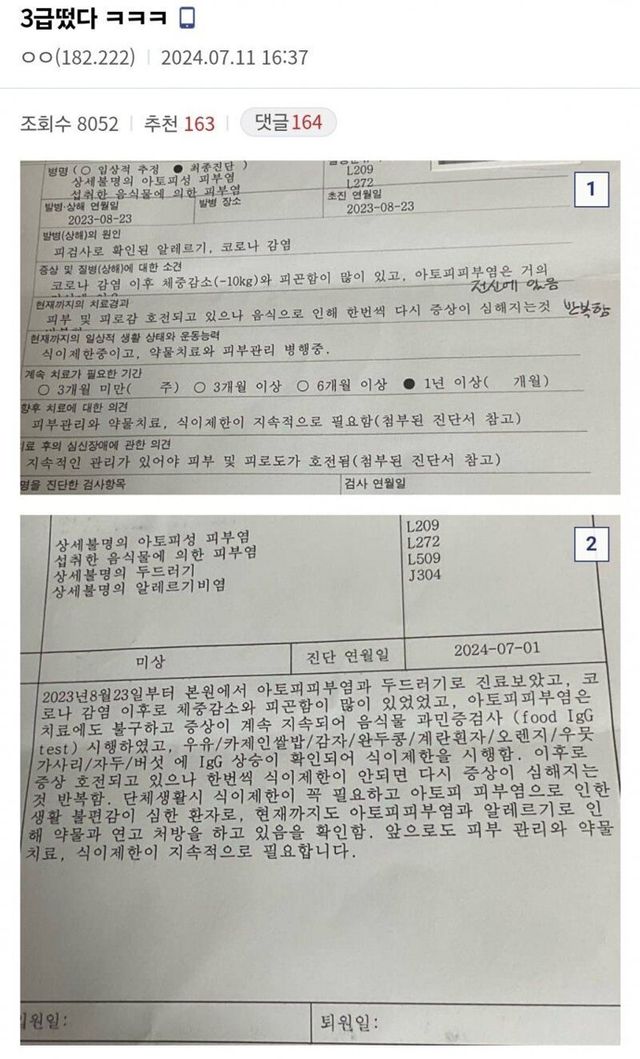 3급떴다 ㅋㅋㅋ
ㅇㅇ(182.222) 2024.07.11 16:37
조회수 8052 추천 163 댓글 164
1
병명(○ 임상적 추정 ● 최종진단 )
상세불명의 아토피성 피부염 L209
섭취한 음식물에 의한 피부염 L272
발병·상해 연월일 발병 장소 초진 연월일
2023-08-23 2023-08-23
발병(상해)의 원인
피검사로 확인된 알레르기, 코로나 감염
증상 및 질병(상해)에 대한 소견
코로나 감염 이후 체중감소(-10kg)와 피곤함이 많이 있고, 아토피피부염은 거의
전신에 있음
현재까지의 치료경과
피부 및 피로감 호전되고 있으나 음식으로 인해 한번씩 다시 증상이 심해지는것 반복함
현재까지의 일상적 생활 상태와 운동능력
식이제한중이고, 약물치료와 피부관리 병행중.
계속 치료가 필요한 기간
○ 3개월 미만( 주) ○ 3개월 이상 ○ 6개월 이상 ● 1년 이상( 개월)
향후 치료에 대한 의견
피부관리와 약물치료, 식이제한이 지속적으로 필요함(첨부된 진단서 참고)
료 후의 심신장애에 관한 의견
지속적인 관리가 있어야 피부 및 피로도가 호전됨(첨부된 진단서 참고)
명을 진단한 검사항목 검사 연월일
2
상세불명의 아토피성 피부염 L209
섭취한 음식물에 의한 피부염 L272
상세불명의 두드러기 L509
상세불명의 알레르기비염 J304
미상 진단 연월일 2024-07-01
2023년8월23일부터 본원에서 아토피피부염과 두드러기로 진료보았고, 코
로나 감염 이후로 체중감소와 피곤함이 많이 있었었고, 아토피피부염은
치료에도 불구하고 증상이 계속 지속되어 음식물 과민증검사 (food IgG
test) 시행하였고, 우유/카제인쌀밥/감자/완두콩/계란흰자/오렌지/우뭇
가사리/자두/버섯 에 IgG 상승이 확인되어 식이제한을 시행함. 이후로
증상 호전되고 있으나 한번씩 식이제한이 안되면 다시 증상이 심해지는
것 반복함. 단체생활시 식이제한이 꼭 필요하고 아토피 피부염으로 인한
생활 불편감이 심한 환자로, 현재까지도 아토피피부염과 알레르기로 인
해 약물과 연고 처방을 하고 있음을 확인함. 앞으로도 피부 관리와 약물
치료, 식이제한이 지속적으로 필요합니다.
입원일: 퇴원일: